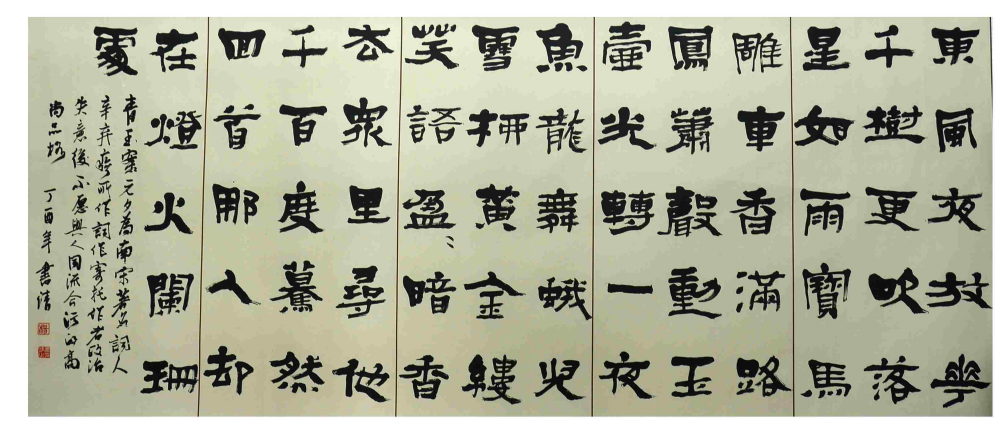 東風夜放華
千樹更吹落
星如雨寶馬
雕車香滿路
鳳蕭聲動玉
壺光轉一夜
魚龍舞蛾兒
雪柳黃金縷
笑語盈〻暗香
去眾里尋他
千百度驀然
回首那人却
在燈火闌珊
處
青玉案元夕為南宋著名詞人
辛弃疾所作詞作寄托作者政治
失意後不愿與人同流合污的高
尚品格 丁酉年書清